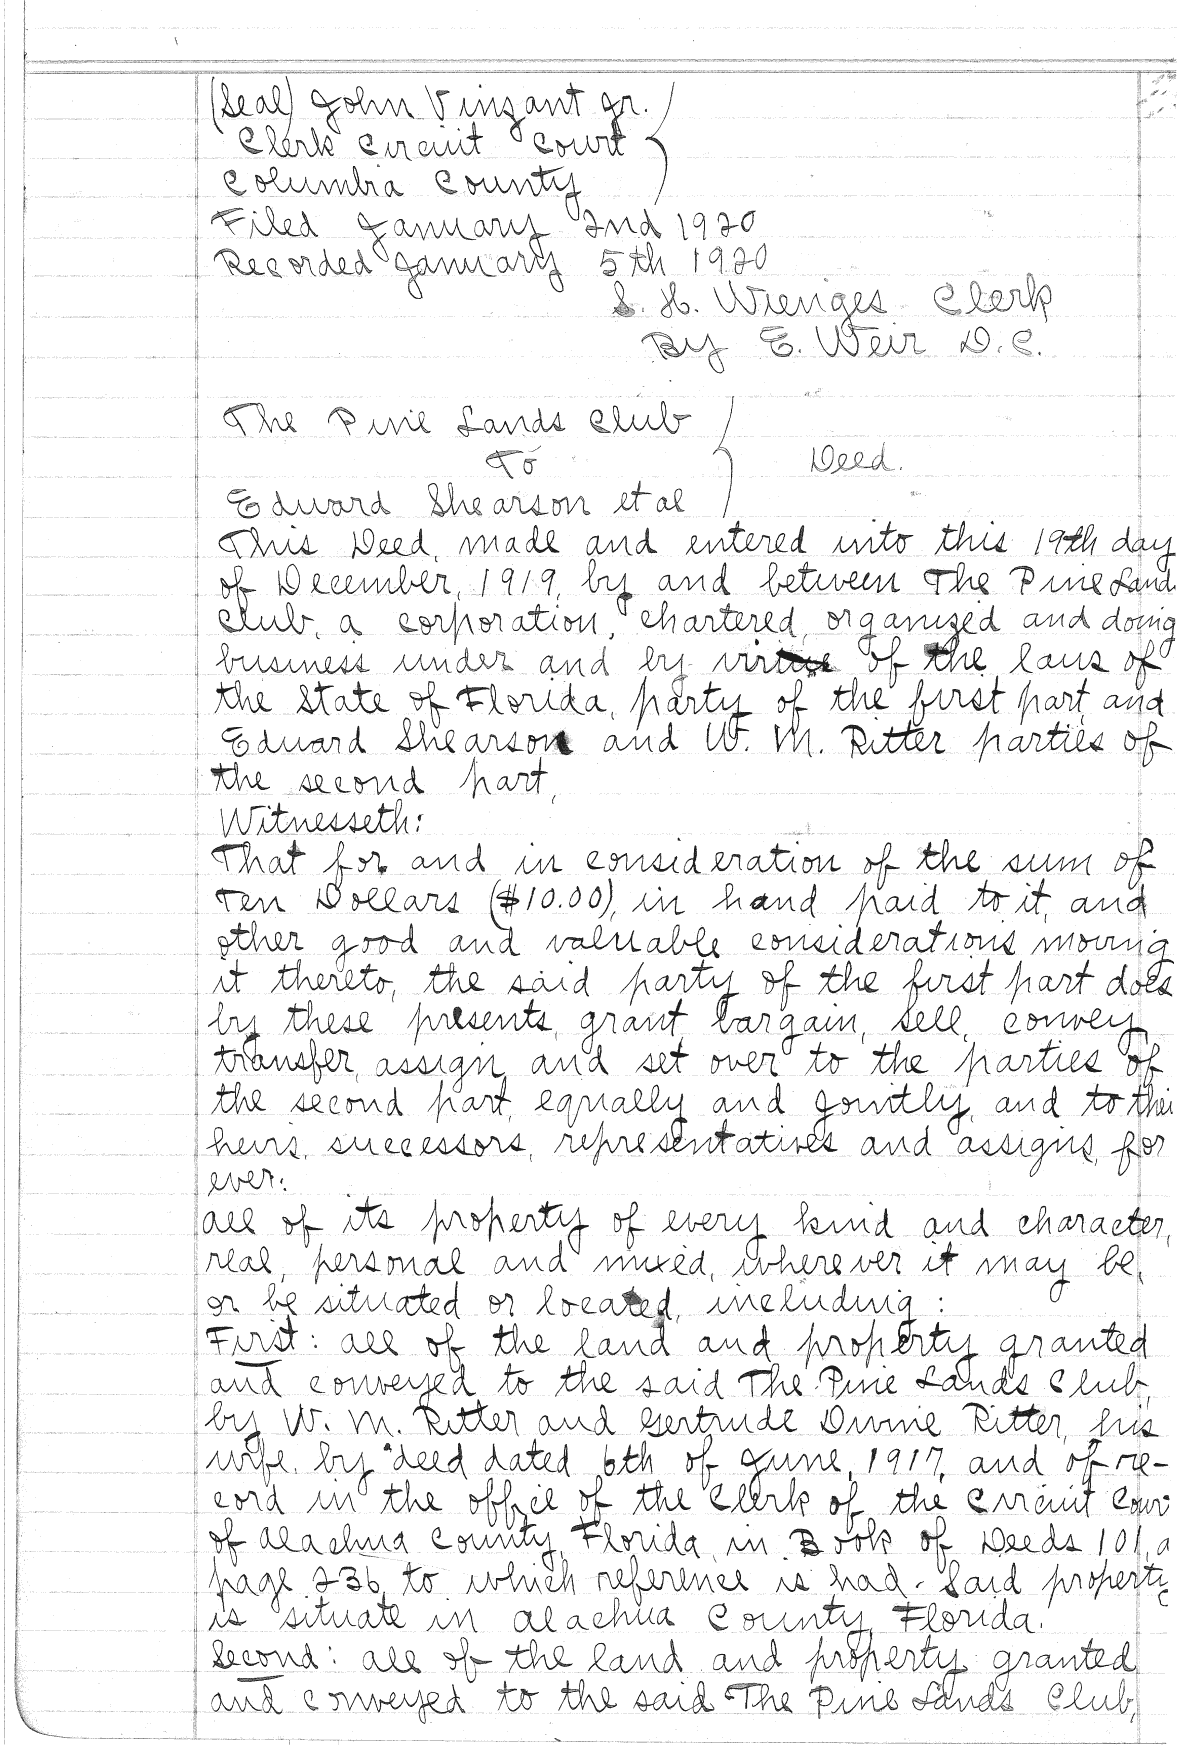 (Seal) John Vinzant Jr.
Clerk Circuit Court
Columbia County
Filed January 2nd 1920
Recorded January 5th 1920
S. H. Wienges Clerk
By E. Weir D.C.
The Pine Lands Club
To
Deed.
Edward Shearson et al
This Deed, made and entered into this 19th day
of December, 1919, by and between The Pine Land
Club, a corporation, chartered, organized and doing
business under and by virtue of the laws of
the State of Florida, party of the first part, and
Edward Shearson and W. M. Ritter parties of
the second part,
Witnesseth:
That for and in consideration of the sum of
Ten Dollars ($10.00), in hand paid to it, and
other good and valuable considerations moving
it thereto, the said party of the first part does
by these presents, grant, bargain, sell, convey,
transfer, assign, and set over to the parties of
the second part, equally and jointly, and to thei
heirs, successors, representatives and assigns, for
ever:
all of its property of every kind and character,
real, personal and mixed, wherever it may be,
or be situated or located, including:
First: all of the land and property granted
and conveyed to the said The Pine Lands Club,
by W. M. Ritter and Gertrude Divine Ritter, his
wife, by deed dated 6th of June, 1917, and of re-
cord in the office of the Clerk of the Circuit Cour
of Alachua County, Florida, in Book of Deeds 101, a
page 236, to which reference is had. Said property
is situate in Alachua County, Florida.
Second: all of the land and property granted
and conveyed to the said The Pine Lands Club,